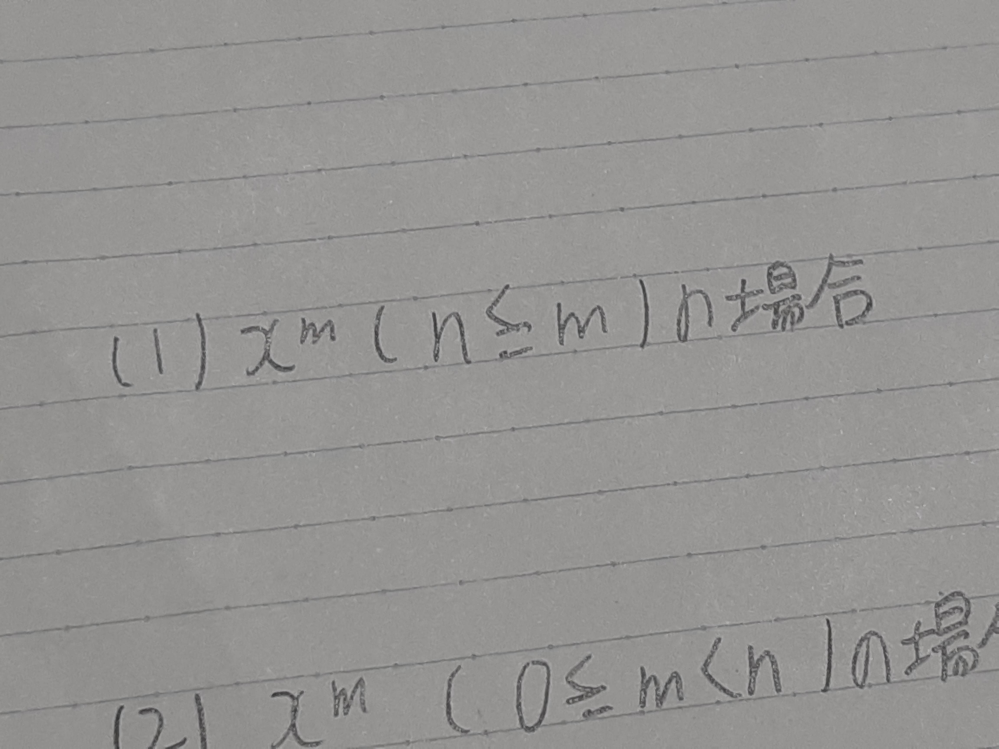 (1) xᵐ (n≦m)の場合
(2) xᵐ (0≦m<n)の場